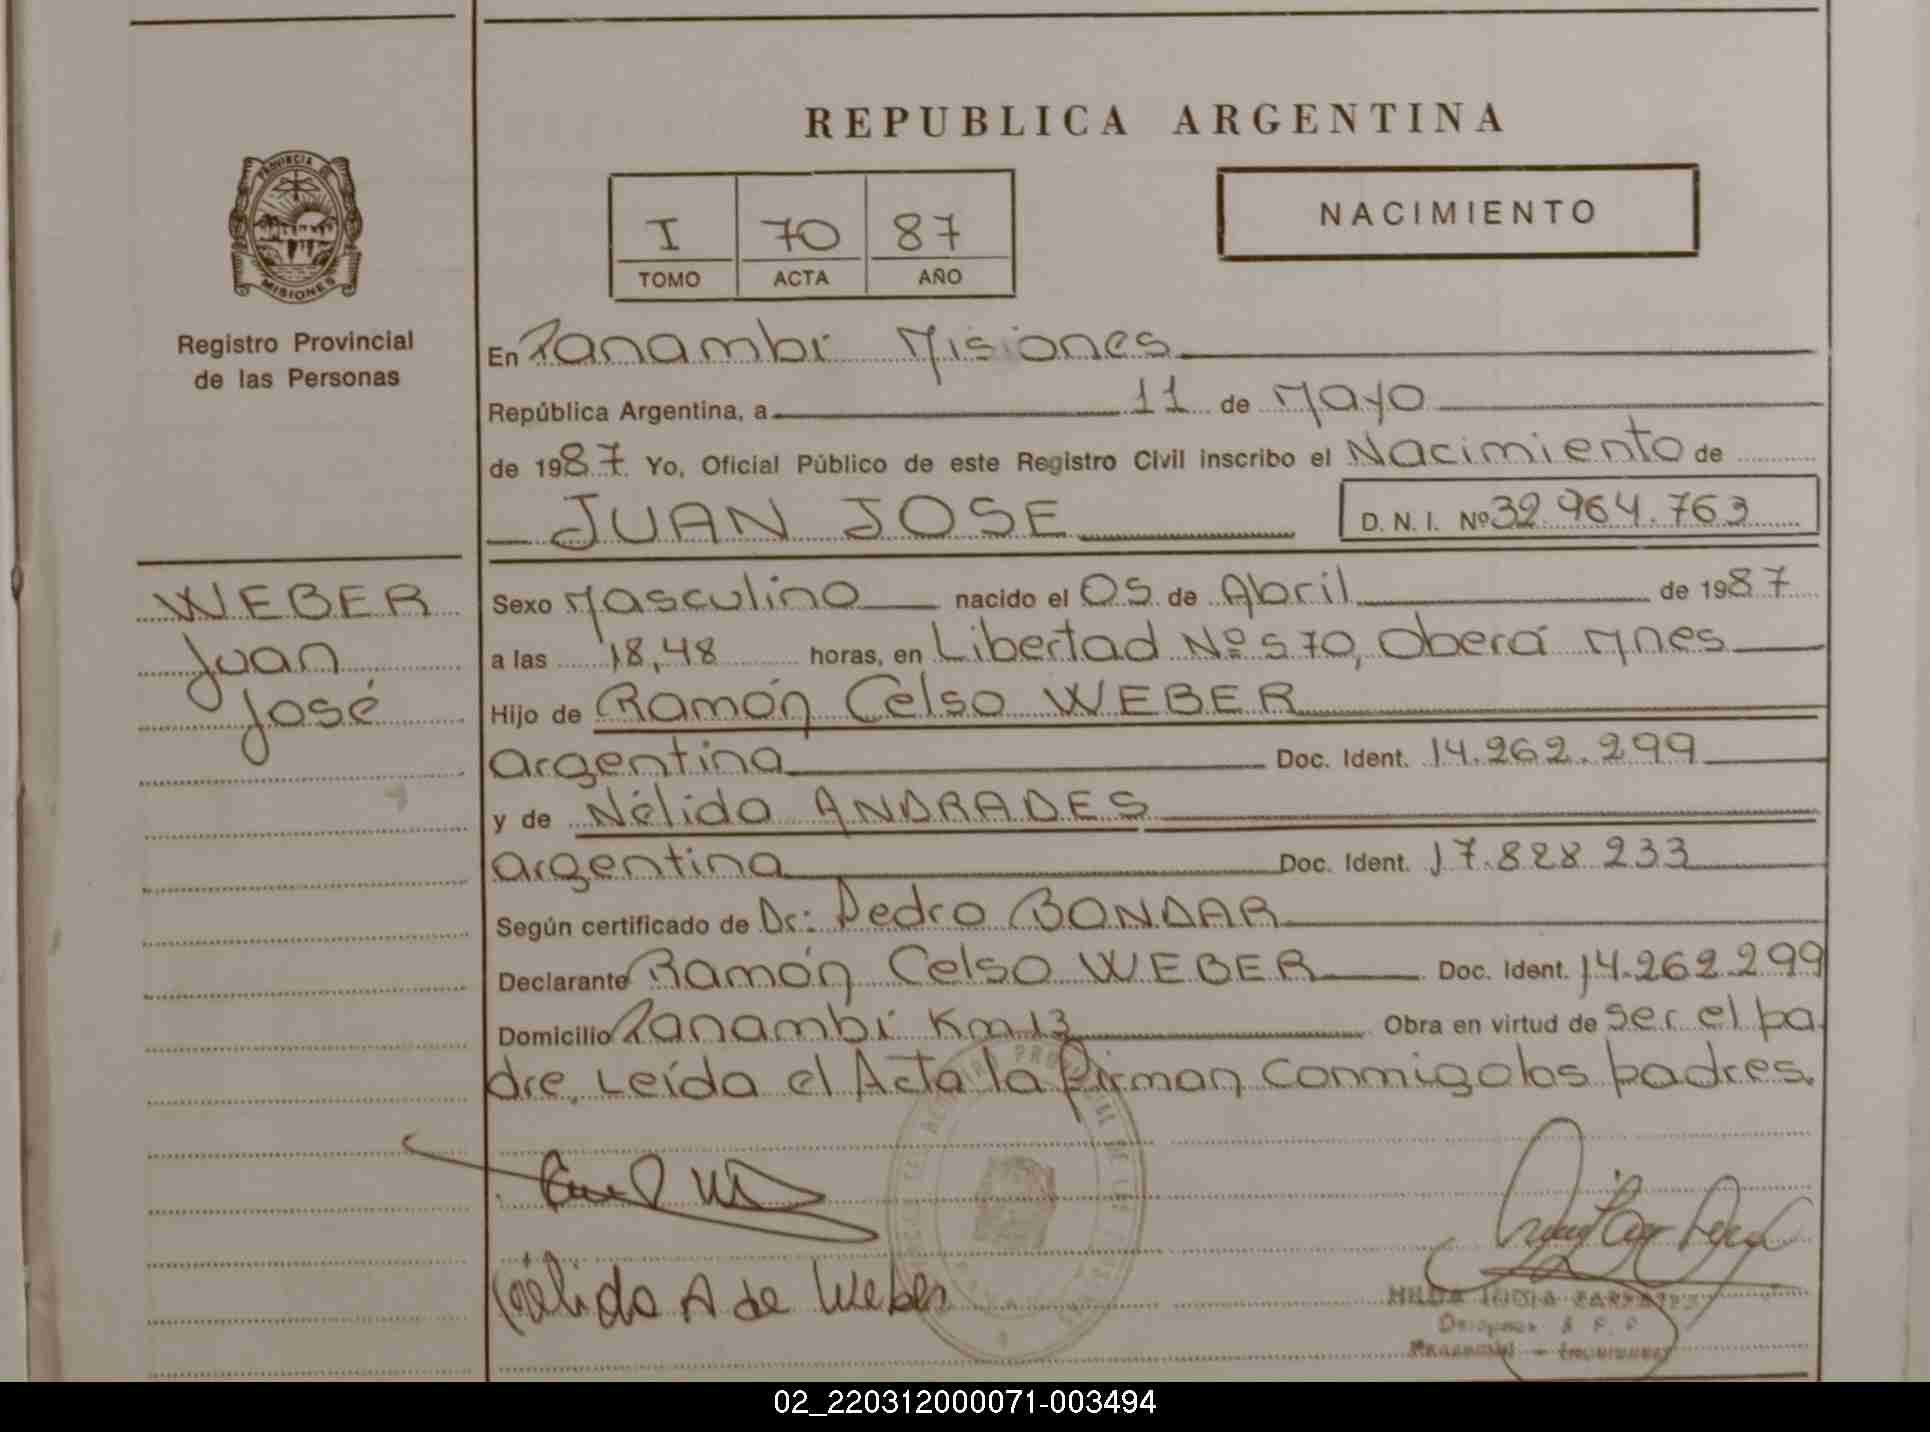 REPUBLICA ARGENTINA
PROVINCIA DE
MISIONES
Registro Provincial
de las Personas
I 70 87
TOMO ACTA AÑO
NACIMIENTO
En Panambí Misiones
República Argentina, a 11 de Mayo
de 1987 Yo, Oficial Público de este Registro Civil inscribo el Nacimiento de
JUAN JOSE D.N.I. Nº 32.964.763
WEBER
Juan
José
Sexo Masculino nacido el 05 de Abril de 1987
a las 18,48 horas, en Libertad Nº 570, Oberá Mnes
Hijo de Ramón Celso WEBER
argentina Doc. Ident. 14.262.299
y de Nélida ANDRADES
argentina Doc. Ident. 17.828.233
Según certificado de Dr: Pedro BONDAR
Declarante Ramón Celso WEBER Doc. Ident. 14.262.299
Domicilio Panambí Km 13 Obra en virtud de ser el pa
dre. Leída el Acta la firman conmigo los padres.
Nélida A de Weber
HILDA
02_220312000071-003494